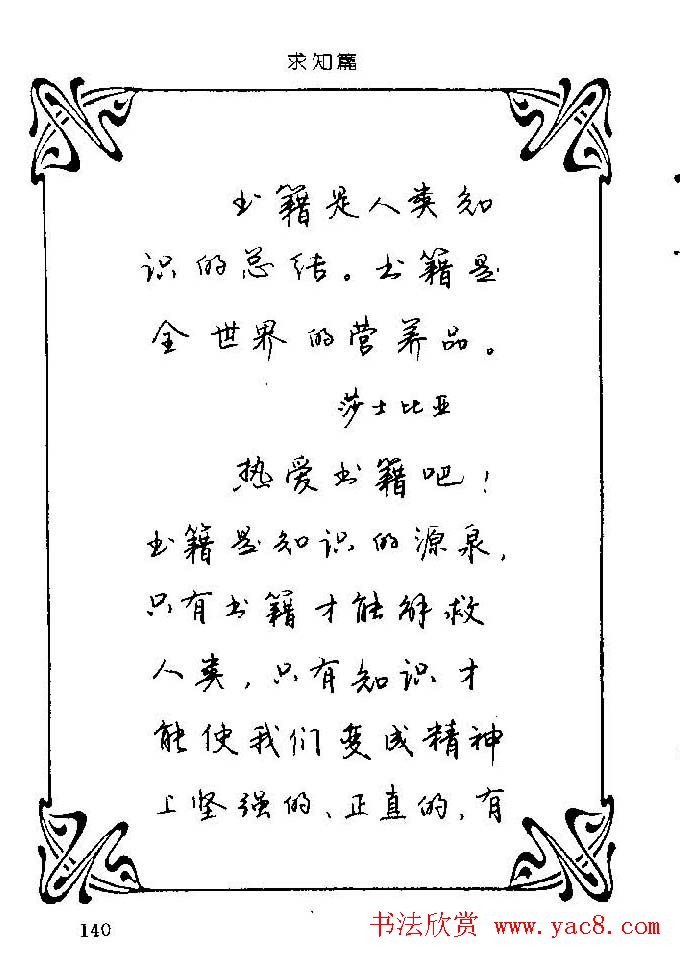 求知篇
书籍是人类知
识的总结。书籍是
全世界的营养品。
莎士比亚
热爱书籍吧！
书籍是知识的源泉，
只有书籍才能解救
人类，只有知识才
能使我们变成精神
上坚强的、正直的，有
140
书法欣赏 www.yac8.com